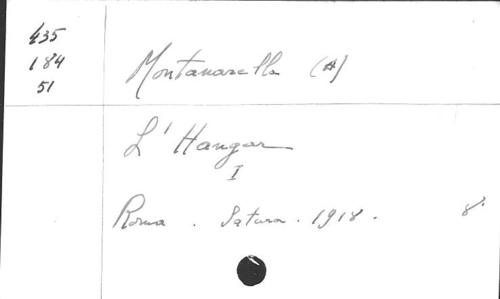 435
184
51
Montanarella (A)
L'Hangar
I
Roma . Satura . 1918 . 8°